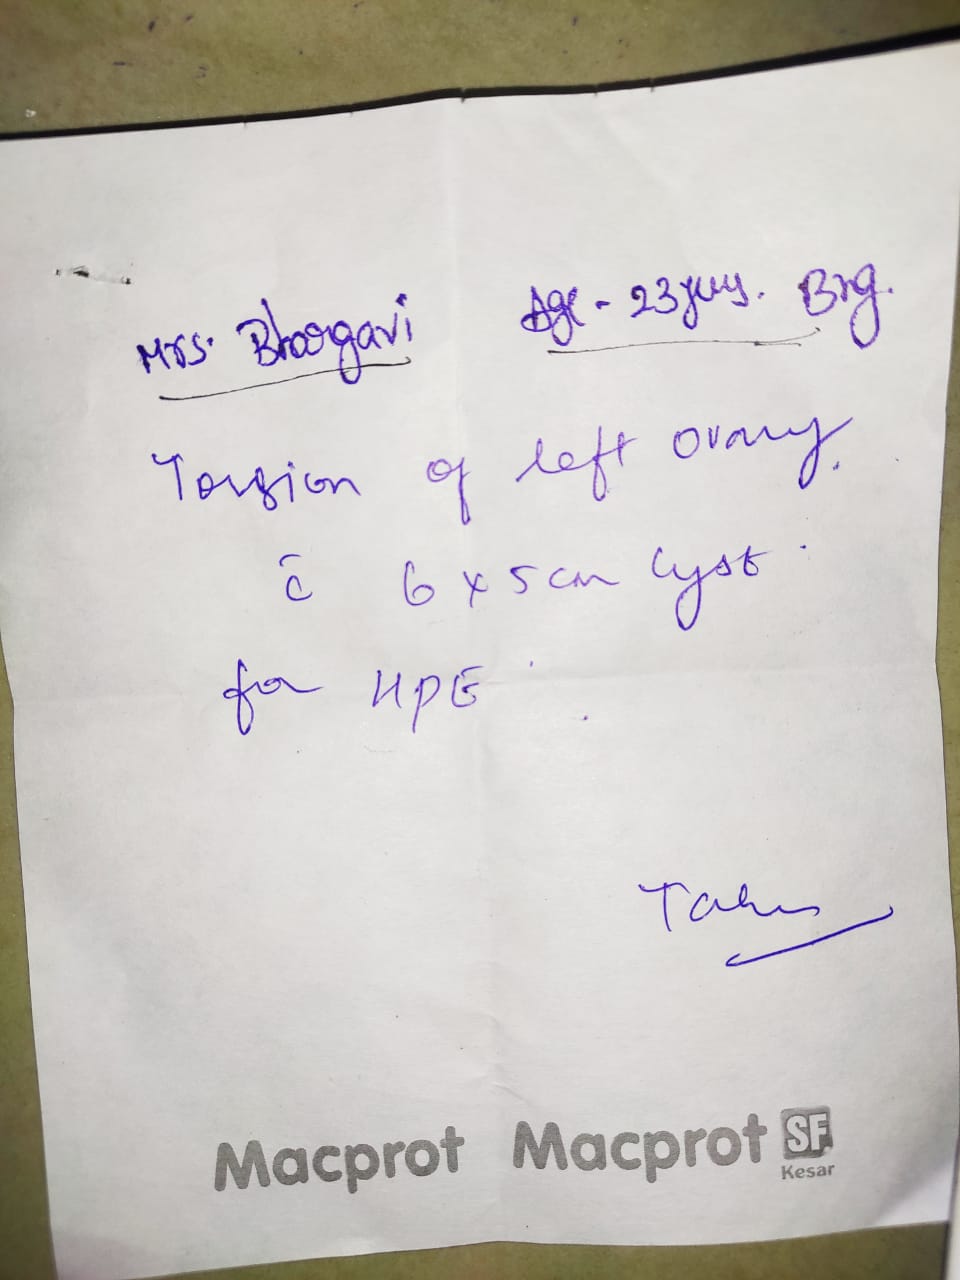 Mrs. Bhargavi Age - 23 yrs. Brg.
Torsion of left ovary.
c̄ 6 x 5 cm Cyst.
for HPE.
Macprot Macprot SF
Kesar